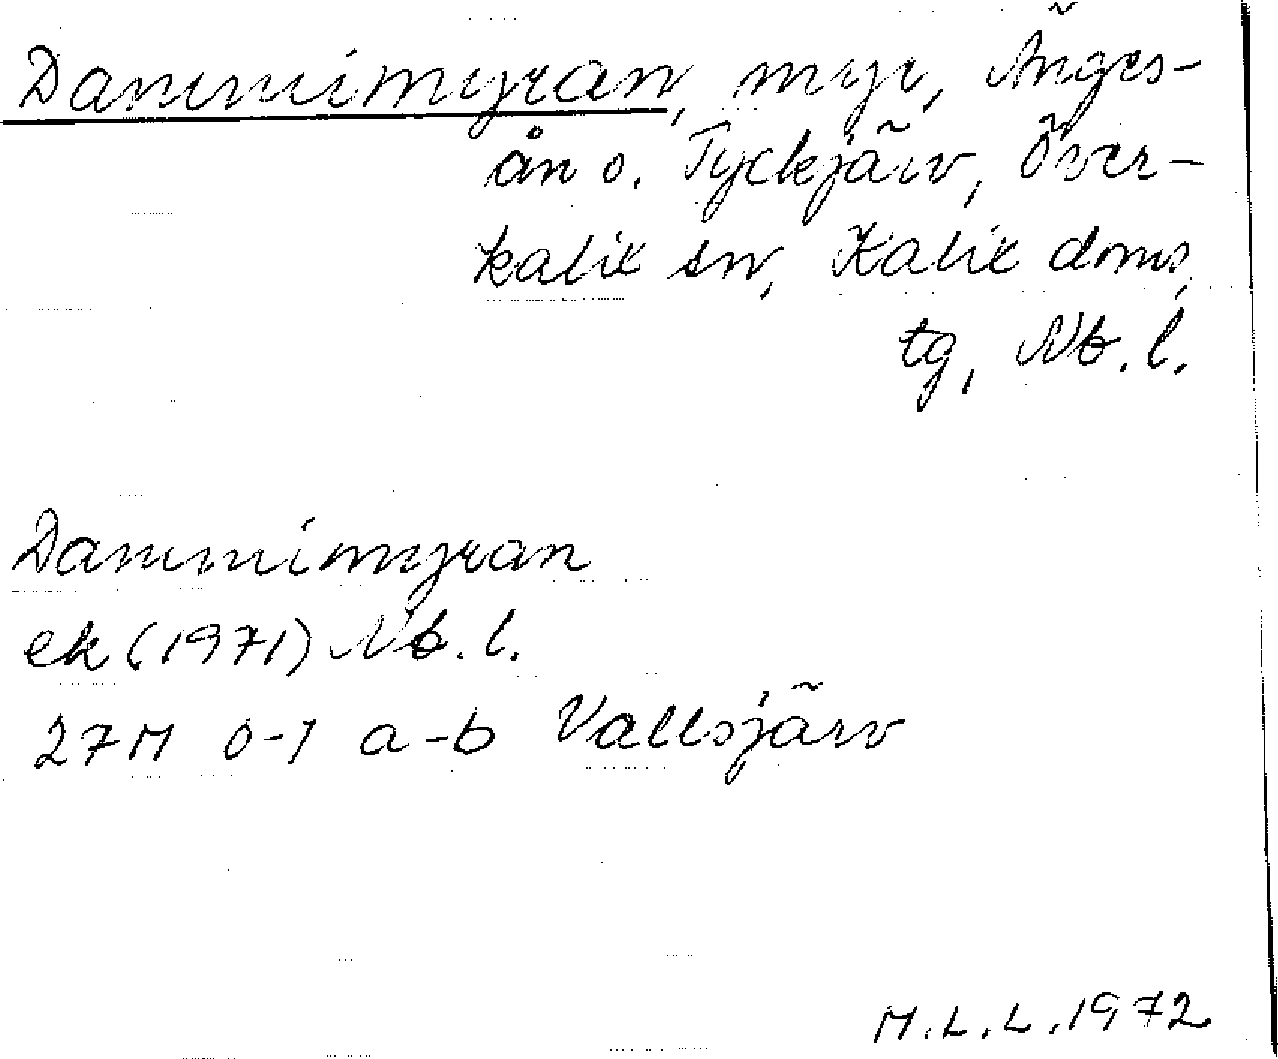 Dammimyran, myr, Änges-
ån o. Tyckjärv, Över-
kalix sn, Kalix doms.
tg, Nb. l.
Dammimyran
ek (1971) Nb. l.
27M 0-1 a-b Vallsjärv
M.L.L. 1972